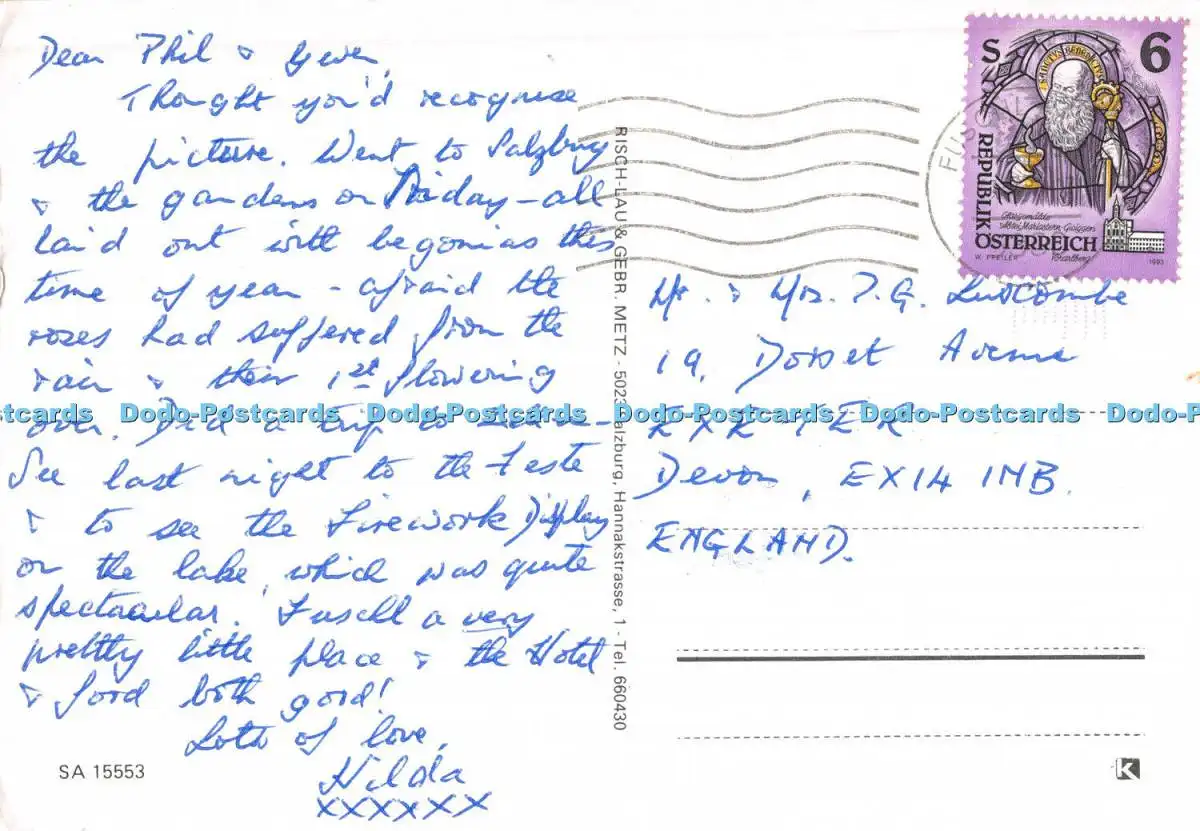 Dear Phil & Gwen,
Thought you'd recognise
the picture. Went to Salzburg
& the gardens on Friday - all
laid out with begonias this
time of year - afraid the
roses had suffered from the
rain & their 1st flowering
over. Did a trip to
See last night to the Feste
& to see the Firework Display
on the lake, which was quite
spectacular. Fuschl a very
pretty little place & the Hotel
& food both good!
Lots of love,
Hilda
xxxxxx
SA 15553
RISCH-LAU & GEBR. METZ - 5023 Salzburg, Hannakstrasse, 1 - Tel. 660430
S 6
SANCTUS BENEDICTUS
REPUBLIK
ÖSTERREICH
Glasgemälde
Abtei Mariastern-Gwiggen
Vorarlberg
W. PFEILER
1993
FUSC
Mr. & Mrs. P. G. Luscombe
19, Dorset Avenue
EXETER
Devon, EX14 1MB.
ENGLAND.
K
Dodo-Postcards Dodo-Postcards Dodo-Postcards Dodo-Postcards Dodo-Postcards